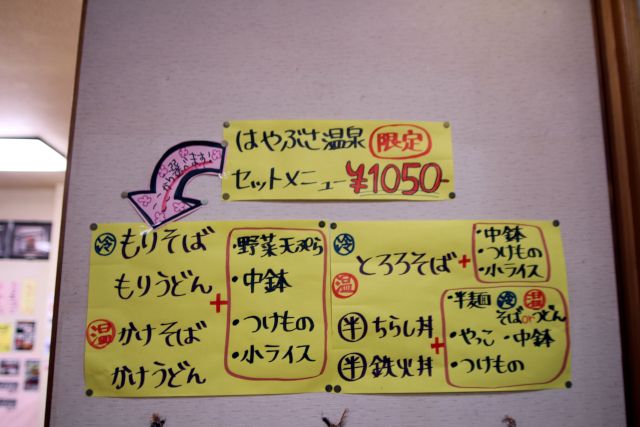 はやぶさ温泉 限定
セットメニュー ¥1050-
選べます!
冷 もりそば
もりうどん
温 かけそば
かけうどん
+
・野菜天ぷら
・中鉢
・つけもの
・小ライス
冷
温
とろろそば +
・中鉢
・つけもの
・小ライス
半 ちらし丼
半 鉄火丼
+
・半麺 冷 温
そばorうどん
・やっこ ・中鉢
・つけもの